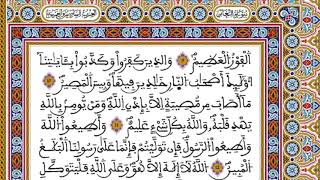 سورة التغابن
الْفَوْزُ الْعَظِيمُ ۝ وَالذِينَ كَفَرُواْ وَكَذَّبُواْ بِـَٔايَٰتِنَا
أُوْلَٰٓئِكَ أَصْحَٰبُ النّارِ خَٰلِدِينَ فِيهَا وَبِيسَ الْمَصِيرُ ۝
مَآ أَصَابَ مِن مُّصِيبَةٍ اِلَّا بِإِذْنِ اللَّهِ وَمَنْ يُّومِنۢ بِاللَّهِ
يَهْدِ قَلْبَهُۥ وَاللَّهُ بِكُلِّ شَےْءٍ عَلِيمٌ ۝ وَأَطِيعُواْ اللَّهَ
وَأَطِيعُواْ الرَّسُولَ فَإِن تَوَلَّيْتُمْ فَإِنَّمَا عَلَىٰ رَسُولِنَا الْبَلَٰغُ
الْمُبِينُ ۝ اللَّهُ لَآ إِلَٰهَ إِلَّا هُوَ وَعَلَى اللَّهِ فَلْيَتَوَكَّلِ